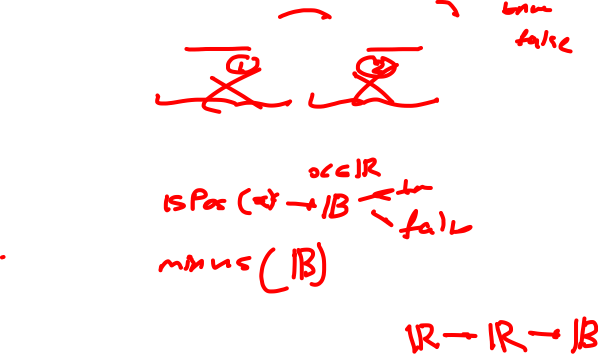 true
false
① ②
x ∈ ℝ
isPos(x) → 𝔹
false
minus(𝔹)
ℝ → ℝ → 𝔹